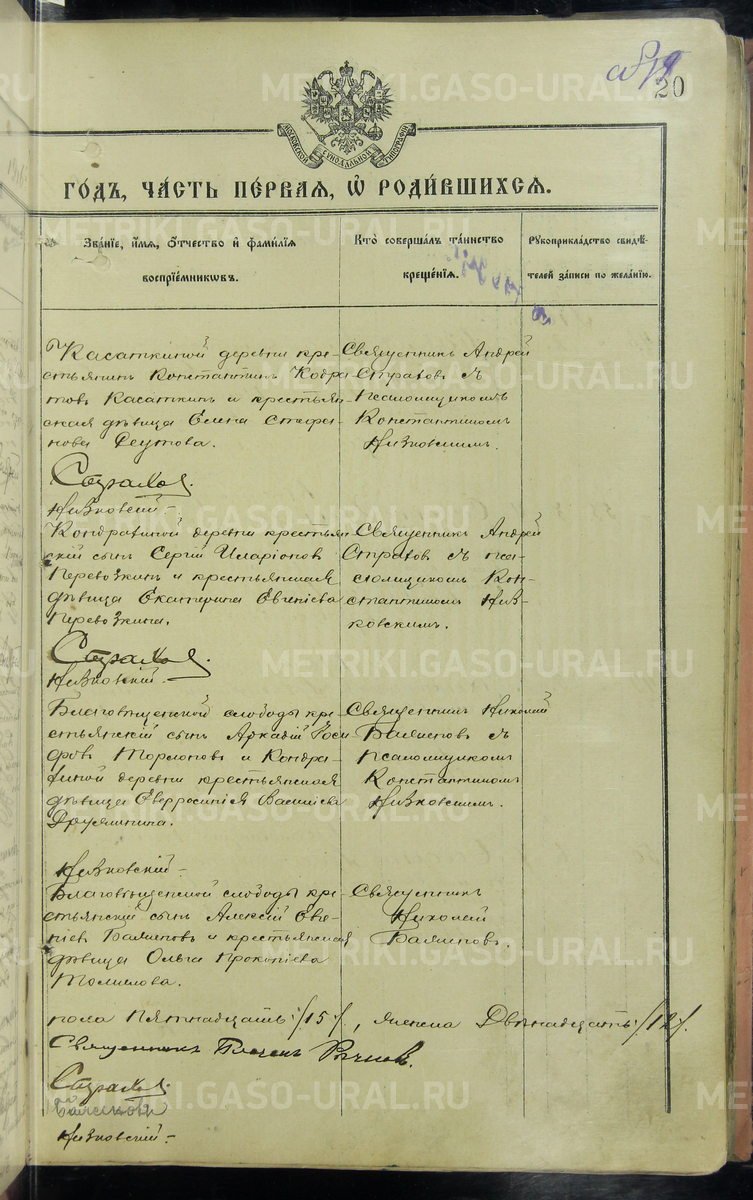 20
МОСКОВСКОЙ СУНОДАЛЬНОЙ ТИПОГРАФІИ
ГОДЪ, ЧАСТЬ ПЕРВАЯ, Ѡ РОДИВШИХСЯ.
Званіе, имя, отчество и фамилія воспріемниковъ.
Кто совершалъ таинство крещенія.
Рукоприкладство свидѣтелей записи по желанію.
Касаткиной деревни кре-
стьянинъ Константинъ Кодра-
товъ Касаткинъ и крестьян-
ская дѣвица Елена Стефа-
нова Реутова.
Священникъ Андрей
Страховъ съ
псаломщикомъ
Константиномъ
Низковскимъ.
Страховъ.
Низковскій.
Кондратиной деревни крестьян-
скій сынъ Сергій Иларіоновъ
Перевозкинъ и крестьянская
дѣвица Екатерина Евгеніева
Перевозкина.
Священникъ Андрей
Страховъ съ пса-
ломщикомъ Кон-
стантиномъ Низ-
ковскимъ.
Страховъ.
Низковскій.
Благовѣщенской слободы кре-
стьянскій сынъ Аркадій Іоси-
фовъ и Кондра-
тиной деревни крестьянская
дѣвица Евфросинія Василіева
Дружинина.
Священникъ Николай
съ
псаломщикомъ
Константиномъ
Низковскимъ.
Низковскій
Благовѣщенской слободы кре-
стьянскій сынъ Алексій Евге-
ніевъ и крестьянская
дѣвица Ольга Прокопіева
Томилова.
Священникъ
Николай
пола Пятнадцать /15/, женска Двѣнадцать /12/.
Священникъ
Страховъ.
Низковскій
METRIKI.GASO-URAL.RU